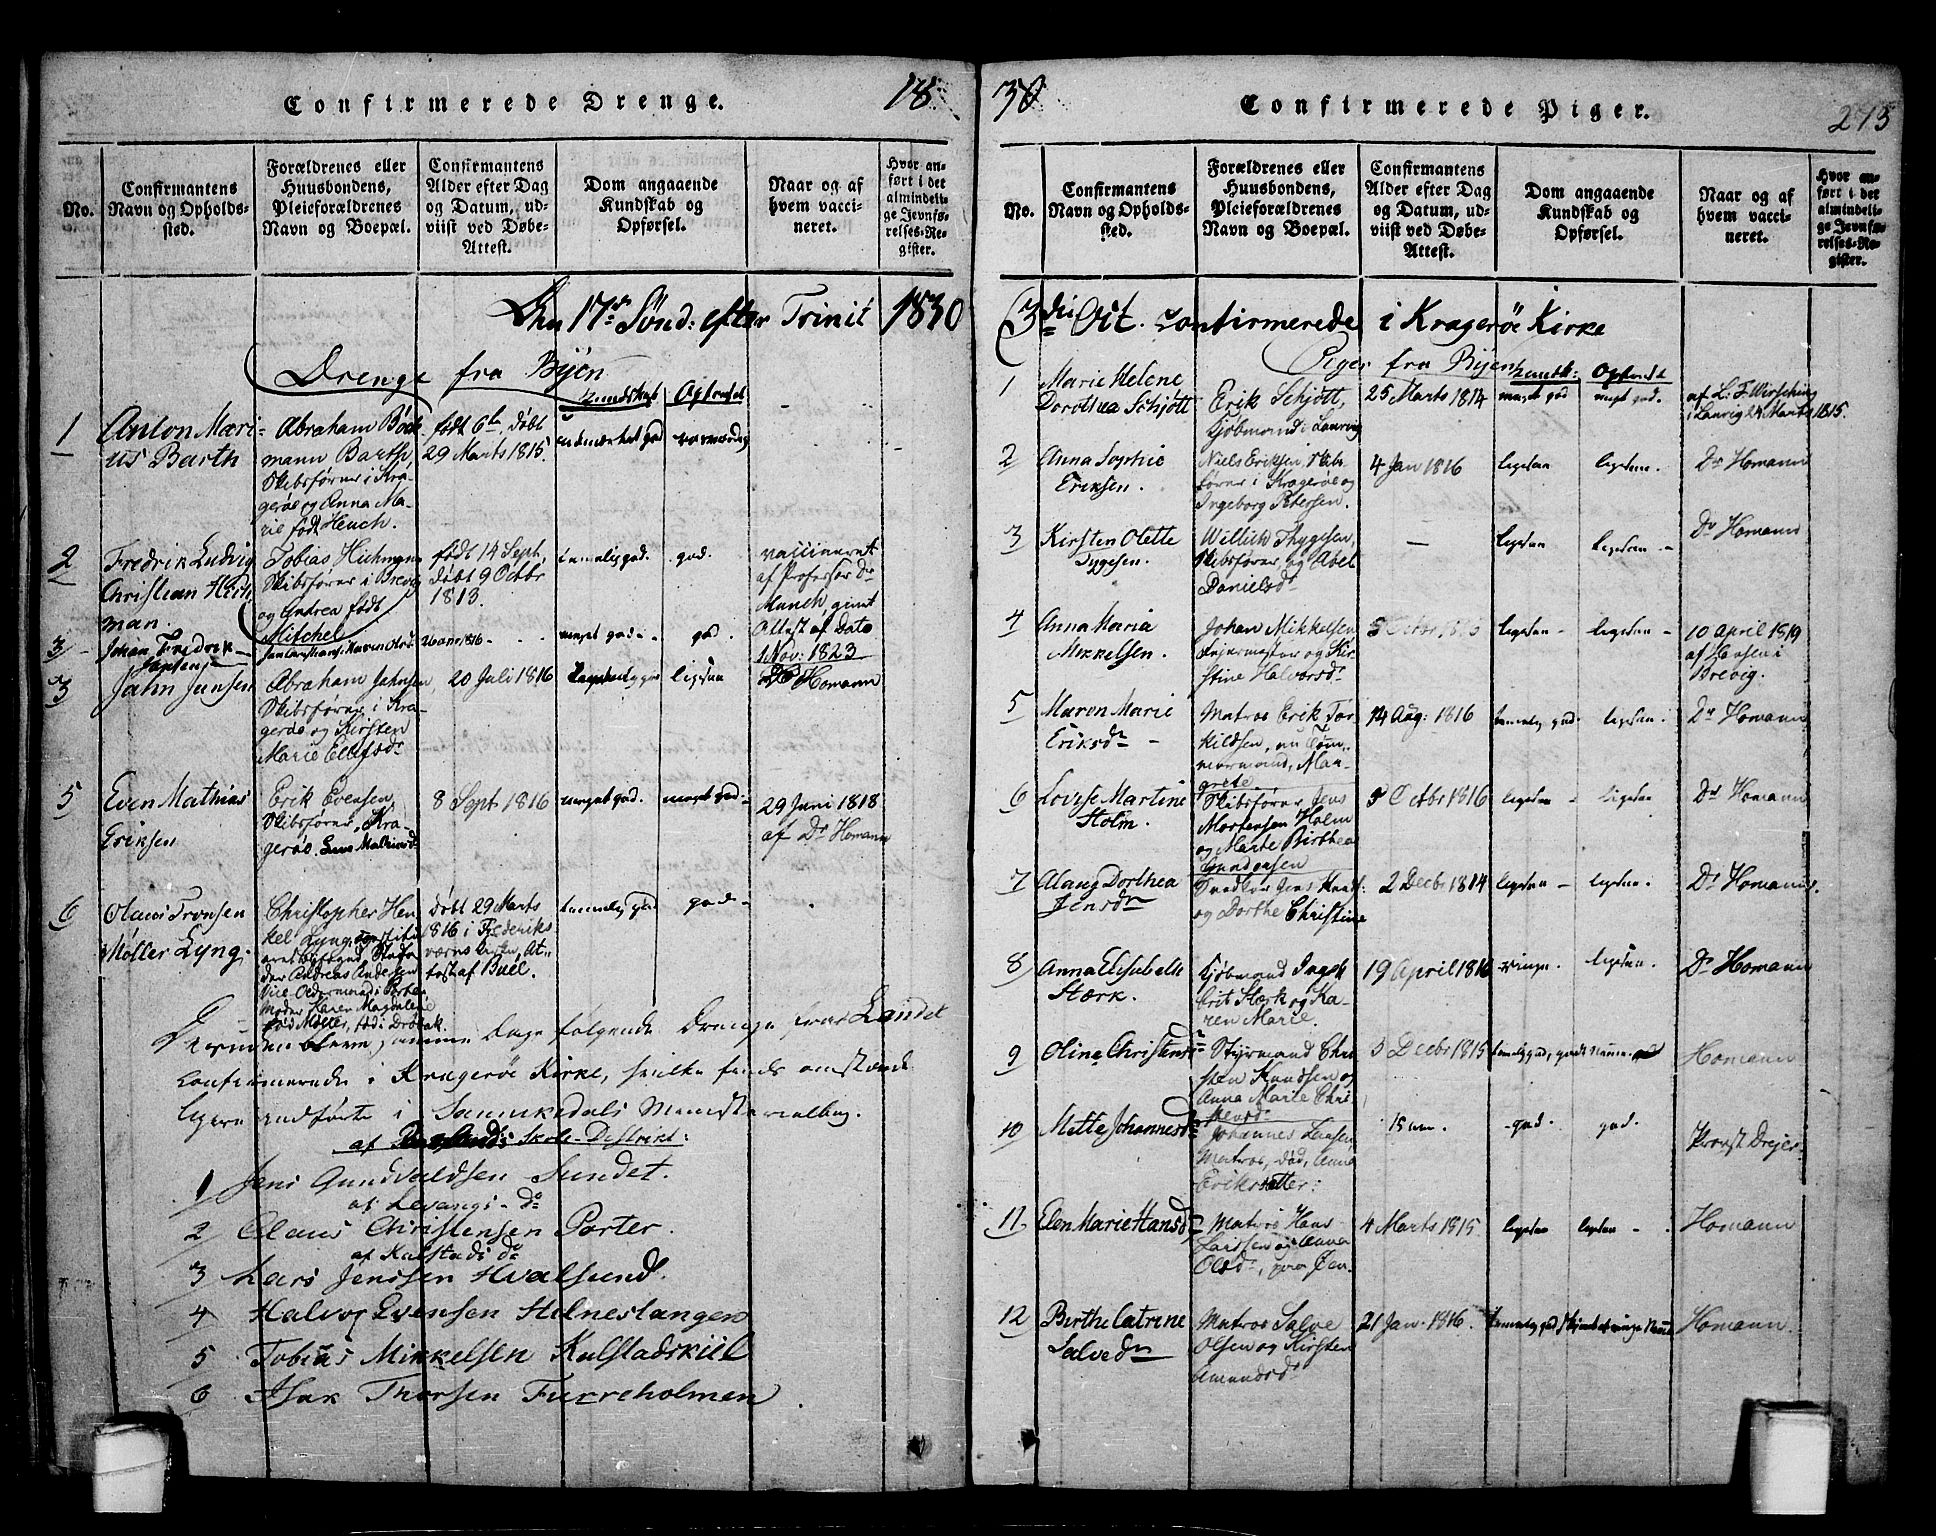 Confirmerede Drenge.
18
No.
Confirmantens Navn og Opholdssted.
Forældrenes eller Huusbondens, Pleieforældrenes Navn og Boepæl.
Confirmantens Alder efter Dag og Datum, udviist ved Døbe-Attest.
Dom angaaende Kundskab og Opførsel.
Naar og af hvem vaccineret.
Hvor anført i det almindelige Jevnførelses-Register.
Den 17de Sønd: efter Trinit 1830
Drenge fra Byen
Kundskab
Opførsel
1
Anton Mari-
us Barth
Abraham Böck-
mann Barth,
Skibsfører i Kra-
gerøe og Anna Ma-
rie født Heuch.
født 6te, døbt
29 Marts 1815.
udmærket god
2
Fredrik Ludvig
Christian Hich
man.
Tobias Hichmann
Skibsfører i Brevig
og Andrea født
Mitchel
født 14 Sept.
døbt 9 Octbr
1813.
temmelig god.
god.
vaccineret
af Professor Dr
Munch, givet
Attest af Dato
1 Nov: 1823
3
Johan Fredrik
Jansen
26 apr 1816
meget god
god.
3
Jahn Jansen
Abraham Jahnsen,
Skibsfører i Kra-
gerøe og Kirsten
Marie Ellefsdr
20 Juli 1816
ligesaa
Dr Homann
5
Even Mathias
Eriksen
Erik Evensen
Skibsfører, Kra-
gerøe.
8 Sept. 1816
meget god.
meget god.
29 Juni 1818
af Dr Homann
6
Olaus Tronsen
Møller Lyng.
Christopher Hen-
kel Lyng,
der Andreas Andersen
Moder Karen Magdalene
født Møller, født i Drøbak.
døbt 29 Marts
1816 i Frederiks
værns Kirke, At-
test af Buel.
temmelig god
god
samme Dage følgende Drenge fra Landet
Confirmerede i Kragerøe Kirke, hvilke findes omstænde
ligere indførte i Sannikedals Ministerialbog.
af Skole-Distrikt:
1 Jens Gundvaldsen Sundet.
af Levangs - do
2 Olaus Christensen Porter.
af Kalstads do
3 Lars Jenssen Hvalsund.
4 Halvor Evensen Helnestangen
5 Tobias Mikkelsen Kalstadkiil
6 Isak Thorsen Furreholmen
30
Confirmerede Piger.
275
No.
Confirmantens Navn og Opholdssted.
Forældrenes eller Huusbondens, Pleieforældrenes Navn og Boepæl.
Confirmantens Alder efter Dag og Datum, udviist ved Døbe-Attest.
Dom angaaende Kundskab og Opførsel.
Naar og af hvem vaccineret.
Hvor anført i det almindelige Jevnførelses-Register.
(3die Oct. confirmerede i Kragerøe Kirke
Piger fra Byen
Kundsk:
Opførsel
1
Marie Helene
Dorothea Schjött
Erik Schjött,
Kjøbmand i Laurvig
25 Marts 1814
meget god
meget god.
i Laurvig 24 Marts 1815.
2
Anna Sophie
Eriksen.
Niels Eriksen, Skibs-
fører i Kragerøe og
Ingeborg Petersen.
4 Jan 1816
ligesaa
ligesaa.
Dr Homann
3
Kirsten Olette
Tygesen.
Willich Thygesen,
Skibsfører og Abel
Danielsdr
ligesaa
ligesaa
Dr Homann
4
Anna Maria
Mikkelsen.
Johan Mikkelsen
Feiermester og Kir-
stine Halvorsdr
ligesaa
ligesaa
10 April 1819
af Hansen i
Brevig.
5
Maren Marie
Eriksdr
Matros Erik Tor
kildsen, nu Tøm-
mermand, Mar-
grete
14 Aug: 1816
temmelig god.
ligesaa.
Dr Homann
6
Lovise Martine
Holm.
Skibsfører Jens
Mortensen Holm
og Marte Birthea
Gundersen
5 Octbr 1816
ligesaa
ligesaa
Dr Homann
7
Alang Dorthea
Jensdr
og Dorthe Christine
2 Decbr 1814
ligesaa
ligesaa.
Dr Homann.
8
Anna Elisabeth
Stærk.
Kjøbmand Inge-
brit Stærk og Ka-
ren Marie.
19 April 1816
ringe.
ligesaa.
Dr Homann
9
Oline Christensdr
Styrmand Chri
sten Knudsen og
Anna Marie Chri
stensdr
3 Decbr 1815
Homann
10
Mette Johannesdr
Johannes Larsen,
Matros, død, Anna
Eriksdatter:
15 aar.
god.
god.
Provst Dreier
11
Elen Marie Hansdr
Matros Hans
Larssen og Anna
Olsdr, paa Øen.
4 Marts 1815.
ligesaa
ligesaa
Homann
12
Birthe Catrine
Salvedr
Matros Salve
Olsen og Kirsten
Amundsdr
21 Jan. 1816.
Homann.